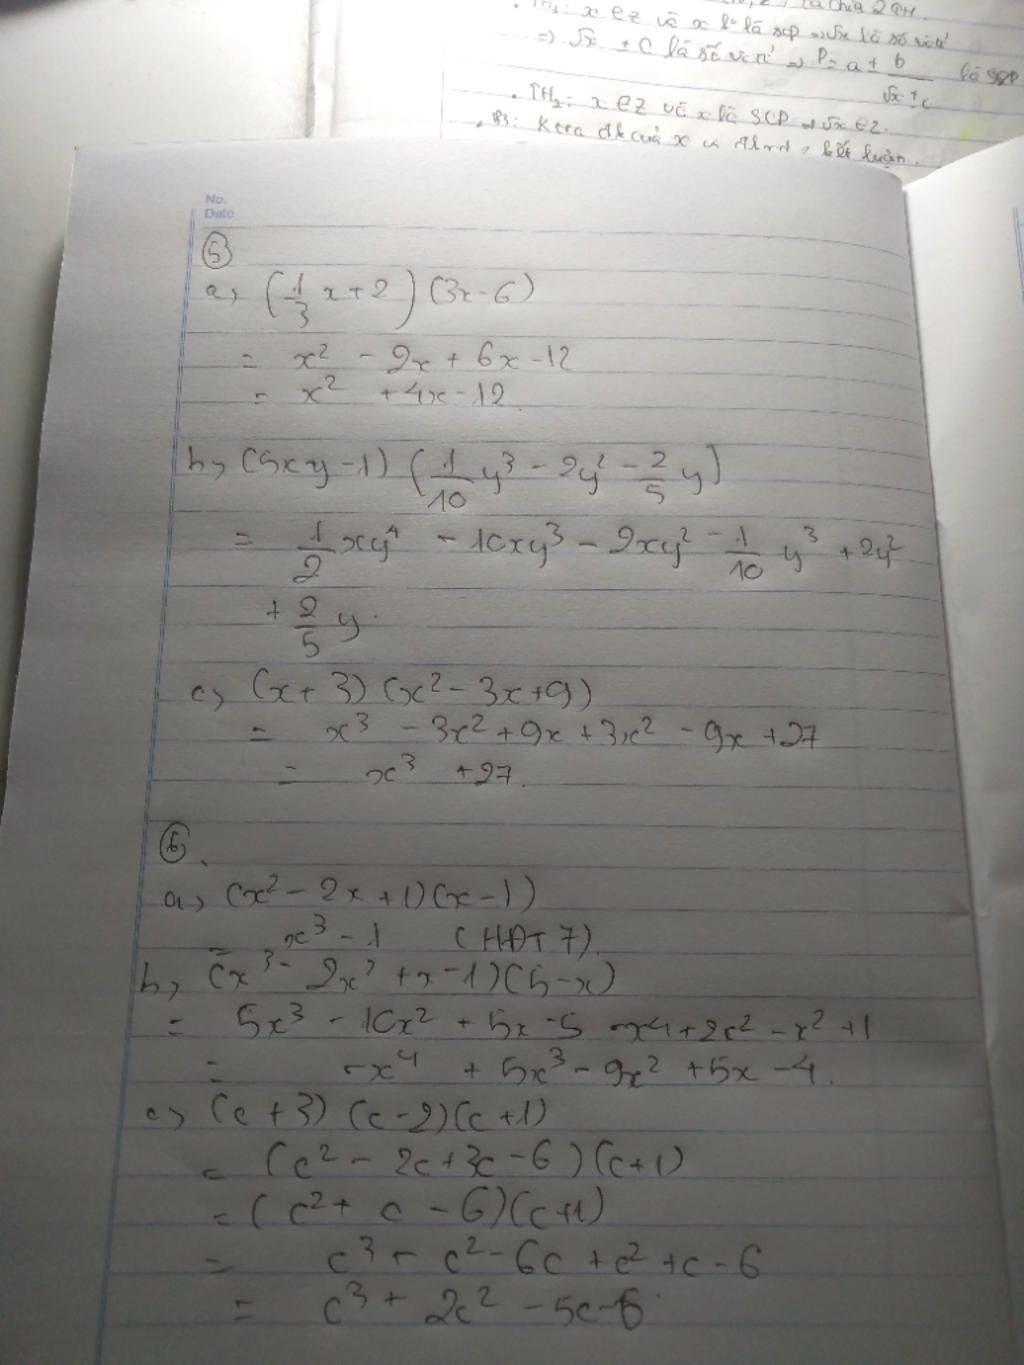 TH₁: x ∈ Z và x là SCP ⇒ √x là số vô tỉ
⇒ √x ± c là số vô tỉ ⇒ P = a ± b/(√x ± c) là
. TH₂: x ∈ Z và x là SCP ⇒ √x ∈ Z.
. B3: Ktra đk của x kết luận.
No.
Date
⑤
a, (1/3 x + 2)(3x - 6)
= x² - 2x + 6x - 12
= x² + 4x - 12
b, (5xy - 1)(1/10 y³ - 2y² - 2/5 y)
= 1/2 xy⁴ - 10xy³ - 2xy² - 1/10 y³ + 2y²
+ 2/5 y.
c, (x + 3)(x² - 3x + 9)
= x³ - 3x² + 9x + 3x² - 9x + 27
= x³ + 27.
⑥.
a, (x² - 2x + 1)(x - 1)
= x³ - 1 (HĐT 7).
b, (x³ - 2x² + x - 1)(5 - x)
= 5x³ - 10x² + 5x - 5 - x⁴ + 2x² - x² + 1
= - x⁴ + 5x³ - 9x² + 5x - 4.
c, (c + 3)(c - 2)(c + 1)
= (c² - 2c + 3c - 6)(c + 1)
= (c² + c - 6)(c + 1)
= c³ + c² - 6c + c² + c - 6
= c³ + 2c² - 5c - 6